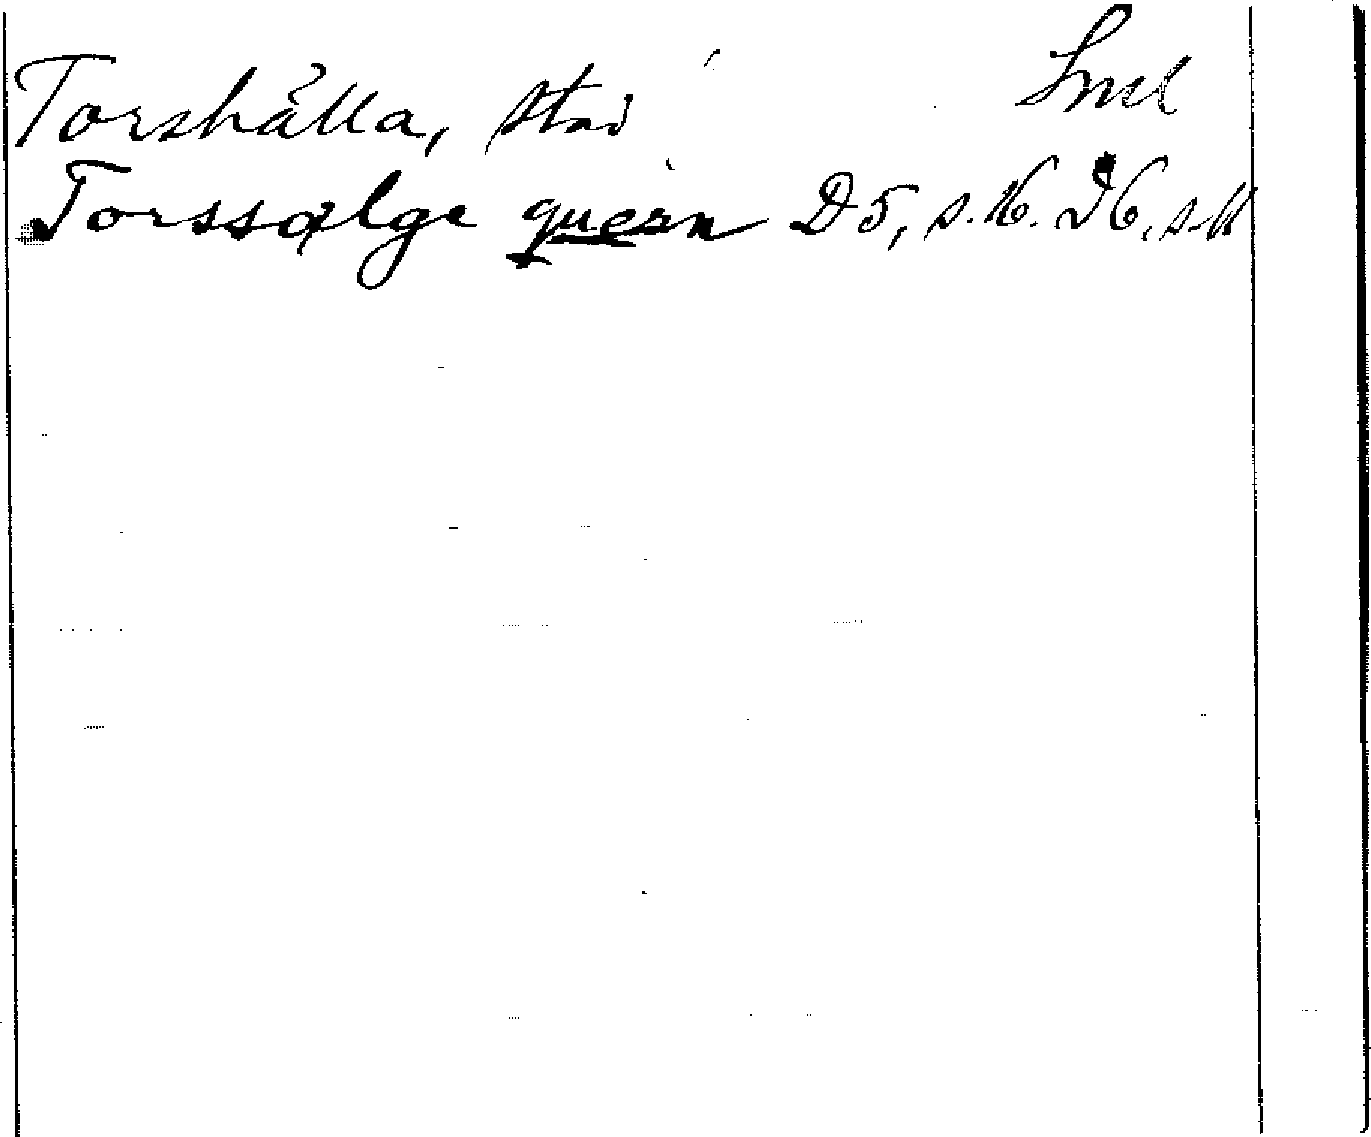 Torshälla, stad Sml
Torssølge quern D5, s. 16. D6, s. 11